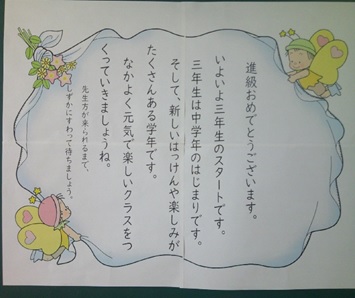 進級おめでとうございます。
いよいよ三年生のスタートです。
三年生は中学年のはじまりです。
そして、新しいはっけんや楽しみが
たくさんある学年です。
なかよく元気で楽しいクラスをつ
くっていきましょうね。
先生方が来られるまで、
しずかにすわって待ちましょう。